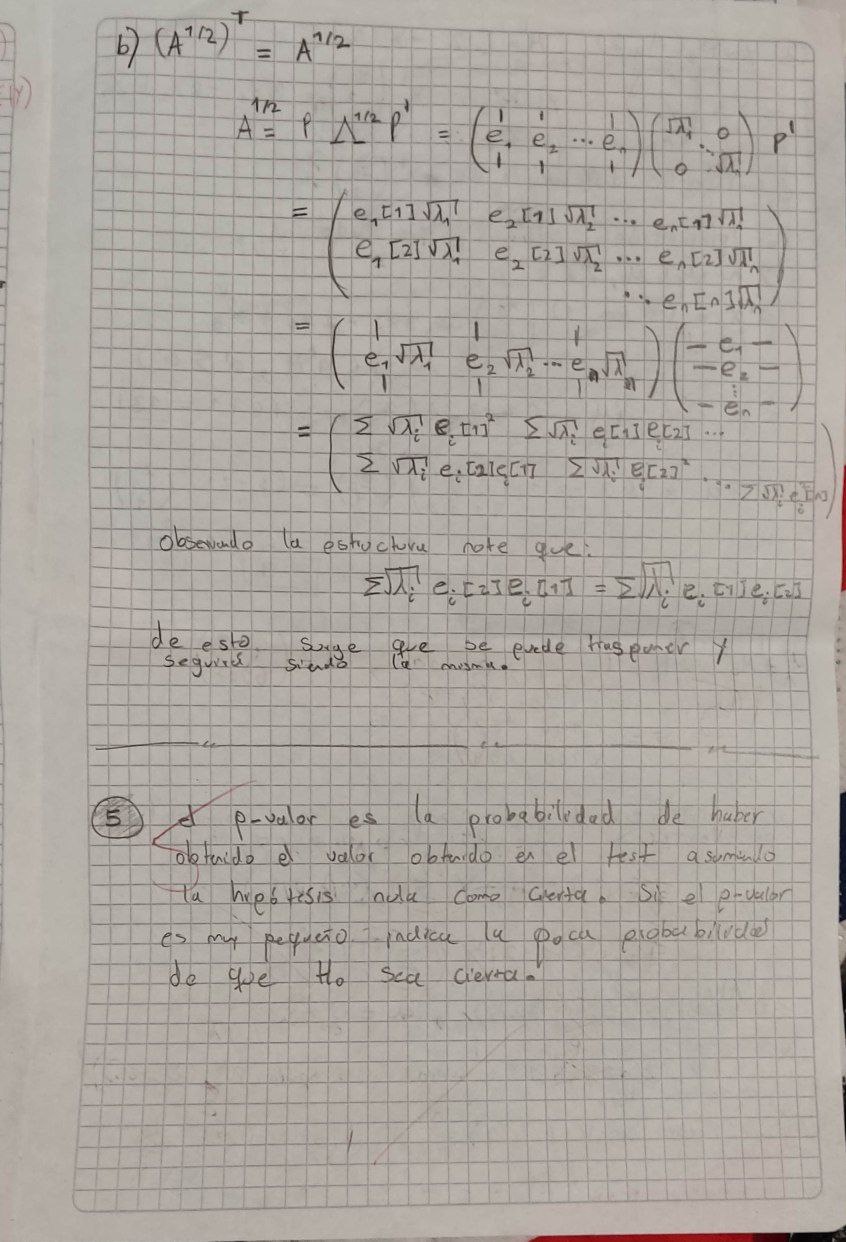 b) (A^1/2)^T = A^1/2
A^1/2 = P Λ^1/2 P' = (e₁ e₂ ... eₙ) (√λ₁ 0 ⋱ 0 √λ) P'
= (e₁[1]√λ₁ e₂[1]√λ₂ ... eₙ[1]√λₙ
e₁[2]√λ₁ e₂[2]√λ₂ ... eₙ[2]√λₙ
... eₙ[n]√λₙ)
= (e₁√λ₁ e₂√λ₂ ... eₙ√λₙ) (– e₁ – – e₂ – ⋮ – eₙ –)
= (Σ √λᵢ eᵢ[1]² Σ√λᵢ eᵢ[1]eᵢ[2] ...
Σ √λᵢ eᵢ[2]eᵢ[1] Σ√λᵢ eᵢ[2]² ... Σ√λᵢ eᵢ²[n])
observando la estructura note que:
Σ√λᵢ eᵢ[2]eᵢ[1] = Σ√λᵢ eᵢ[1]eᵢ[2]
de esto surge que se puede trasponer y
seguirá siendo la misma.
5 el p-valor es la probabilidad de haber
obtenido el valor obtenido en el test asumiendo
la hipótesis nula como cierta. Si el p-valor
es muy pequeño indica la poca probabilidad
de que H₀ sea cierta.